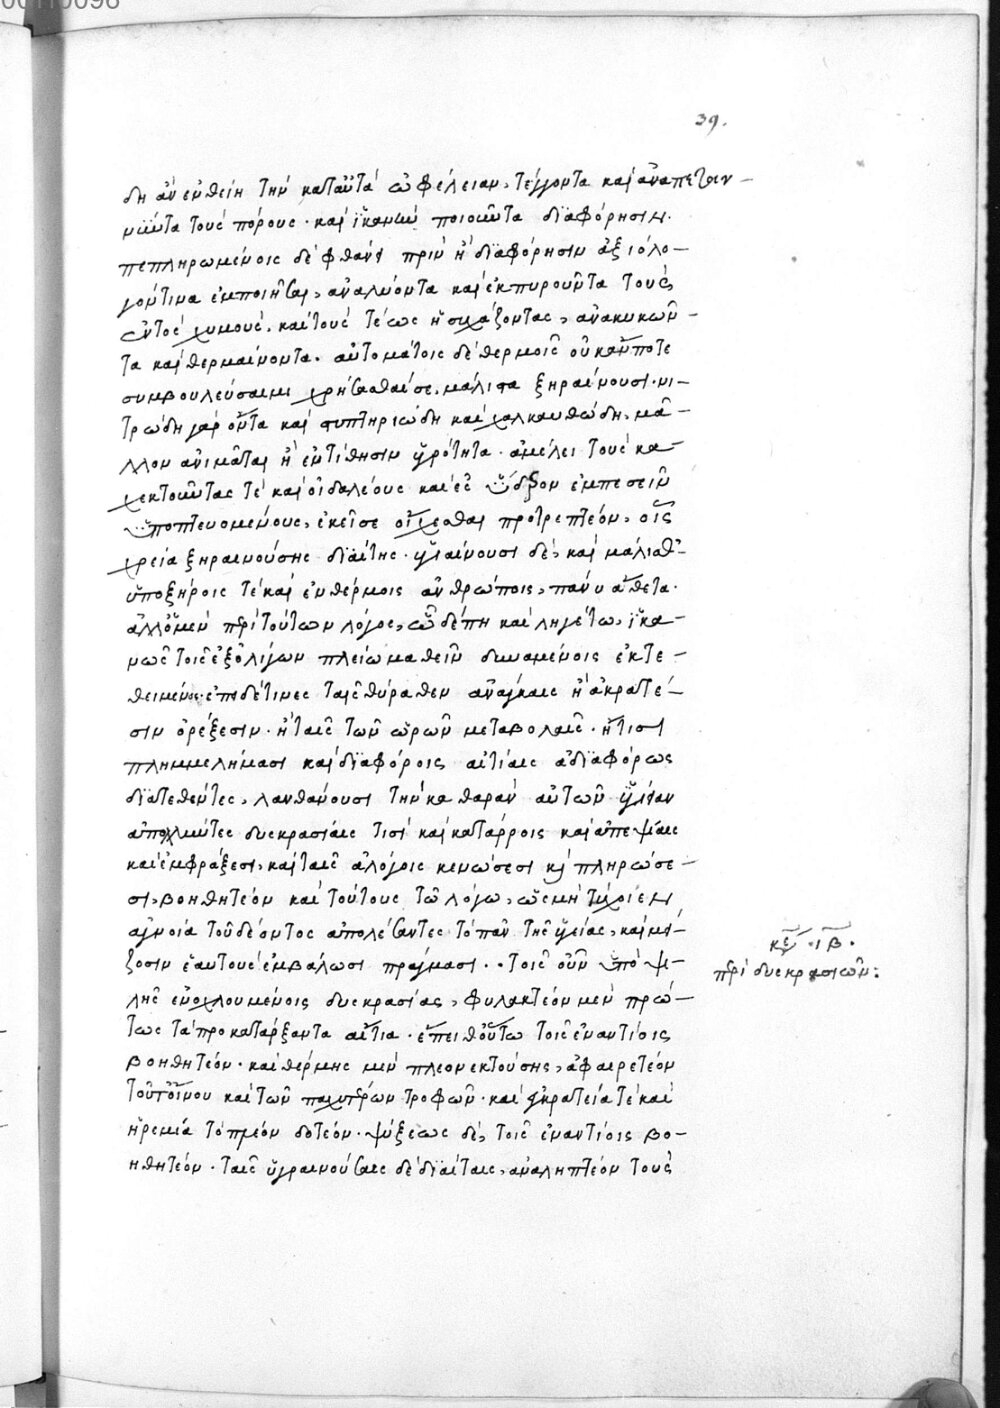 39.
δη ἀν ἐνθείη τὴν κατὰ ταῦτα ὠφέλειαν, τέγγοντα καὶ ἀναπεταν-
νύντα τοὺς πόρους · καὶ ἱκανὴν ποιοῦντα διαφόρησιν.
πεπληρωμένοις δὲ φθάνει πρὶν ἢ διαφόρησιν ἀξιόλο-
γόν τινα ἐμποιῆσαι, ἀναλύοντα καὶ ἐκπυροῦντα τοὺς
ἐντὸς χυμοὺς. καὶ τοὺς τέως ἡσυχάζοντας, ἀνακυκῶν-
τα καὶ θερμαίνοντα. αὐτομάτοις δὲ θερμοῖς οὐκ ἄν ποτε
συμβουλεύσαιμι χρήσασθαί σε. μάλιστα ξηραίνουσι. νι-
τρώδη γὰρ ὄντα καὶ στυπτηριώδη καὶ χαλκανθώδη, μᾶ-
λλον ἀνιμᾶται ἢ ἐντίθησιν ὑγρότητα · ἀμέλει τοὺς κα-
χεκτοῦντας τὲ καὶ οἰδαλέους καὶ εἰς ὕδρον ἐμπεσεῖν
ὑποπτευομένους, ἐκεῖσε οἴχεσθαι προτρεπτέον, οἷς
χρεία ξηραινούσης διαίτης · ὑγιαίνουσι δὲ, καὶ μάλισθ'
ὑποξήροις τὲ καὶ ἐνθέρμοις ἀνθρώποις, πάνυ ἄθετα.
ἀλλ' ὁ μὲν περὶ τούτων λόγος, ὧδέ πη καὶ ληγέτω, ἱκα-
νῶς τοῖς ἐξ ὀλίγων πλείω μαθεῖν δυναμένοις ἐκτε-
θειμένος · ἐπεὶ δέ τινες ταῖς θύραθεν ἀνάγκαις ἢ ἀκρατέ-
σιν ὀρέξεσιν · ἢ ταῖς τῶν ὡρῶν μεταβολαῖς · ἤ τισι
πλημμελήμασι καὶ διαφόροις αἰτίαις ἀδιαφόρως
διατεθέντες, λανθάνουσι τὴν καθαρὰν αὐτῶν ὑγίειαν
ἀπολλύντες δυσκρασίαις τισὶ καὶ κατάρροις καὶ ἀπεψίαις
καὶ ἐμφράξεσι, καὶ ταῖς ἀλόγοις κενώσεσι καὶ πληρώσε-
σι, βοηθητέον καὶ τούτους τῷ λόγῳ, ὡς μὴ
ἀγνοίᾳ τοῦ δέοντος ἀπολέσαντες τὸ πᾶν τῆς ὑγίας, καὶ μεί-
ζοσιν ἑαυτοὺς ἐμβάλωσι πράγμασι. · τοῖς οὖν ὑπὸ ψι-
λῆς ἐνοχλουμένοις δυσκρασίας, φυλακτέον μὲν πρώ-
τως τὰ προκατάρξαντα αἴτια · ἔπειθ' οὕτω τοῖς ἐναντίοις
βοηθητέον · καὶ θέρμης μὲν πλεονεκτούσης, ἀφαιρετέον
τοῦ τ' οἴνου καὶ τῶν παχυτέρων τροφῶν · καὶ ἐγκρατείᾳ τὲ καὶ
ἠρεμίᾳ τὸ πλέον δοτέον · ψύξεως δὲ, τοῖς ἐναντίοις βο-
ηθητέον · ταῖς ὑγραινούσαις δὲ διαίταις, ἀναληπτέον τοὺς
κεφ · ιβ ·
περὶ δυσκρασιῶν: